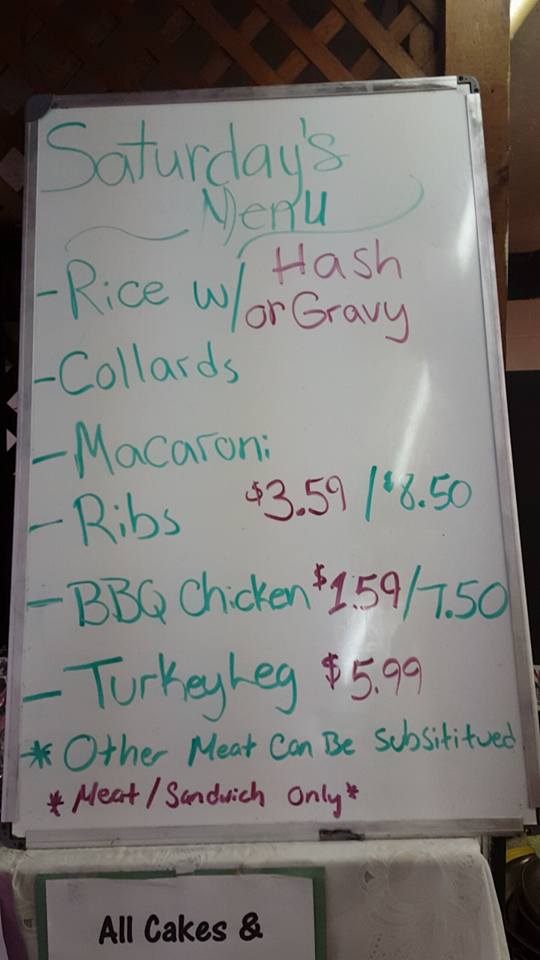 Saturday's
Menu
- Rice w/ Hash
or Gravy
- Collards
- Macaroni
- Ribs $3.59 / $8.50
- BBQ Chicken $1.59/7.50
- Turkey Leg $5.99
* Other Meat Can Be Subsititued
* Meat / Sandwich Only *
All Cakes &